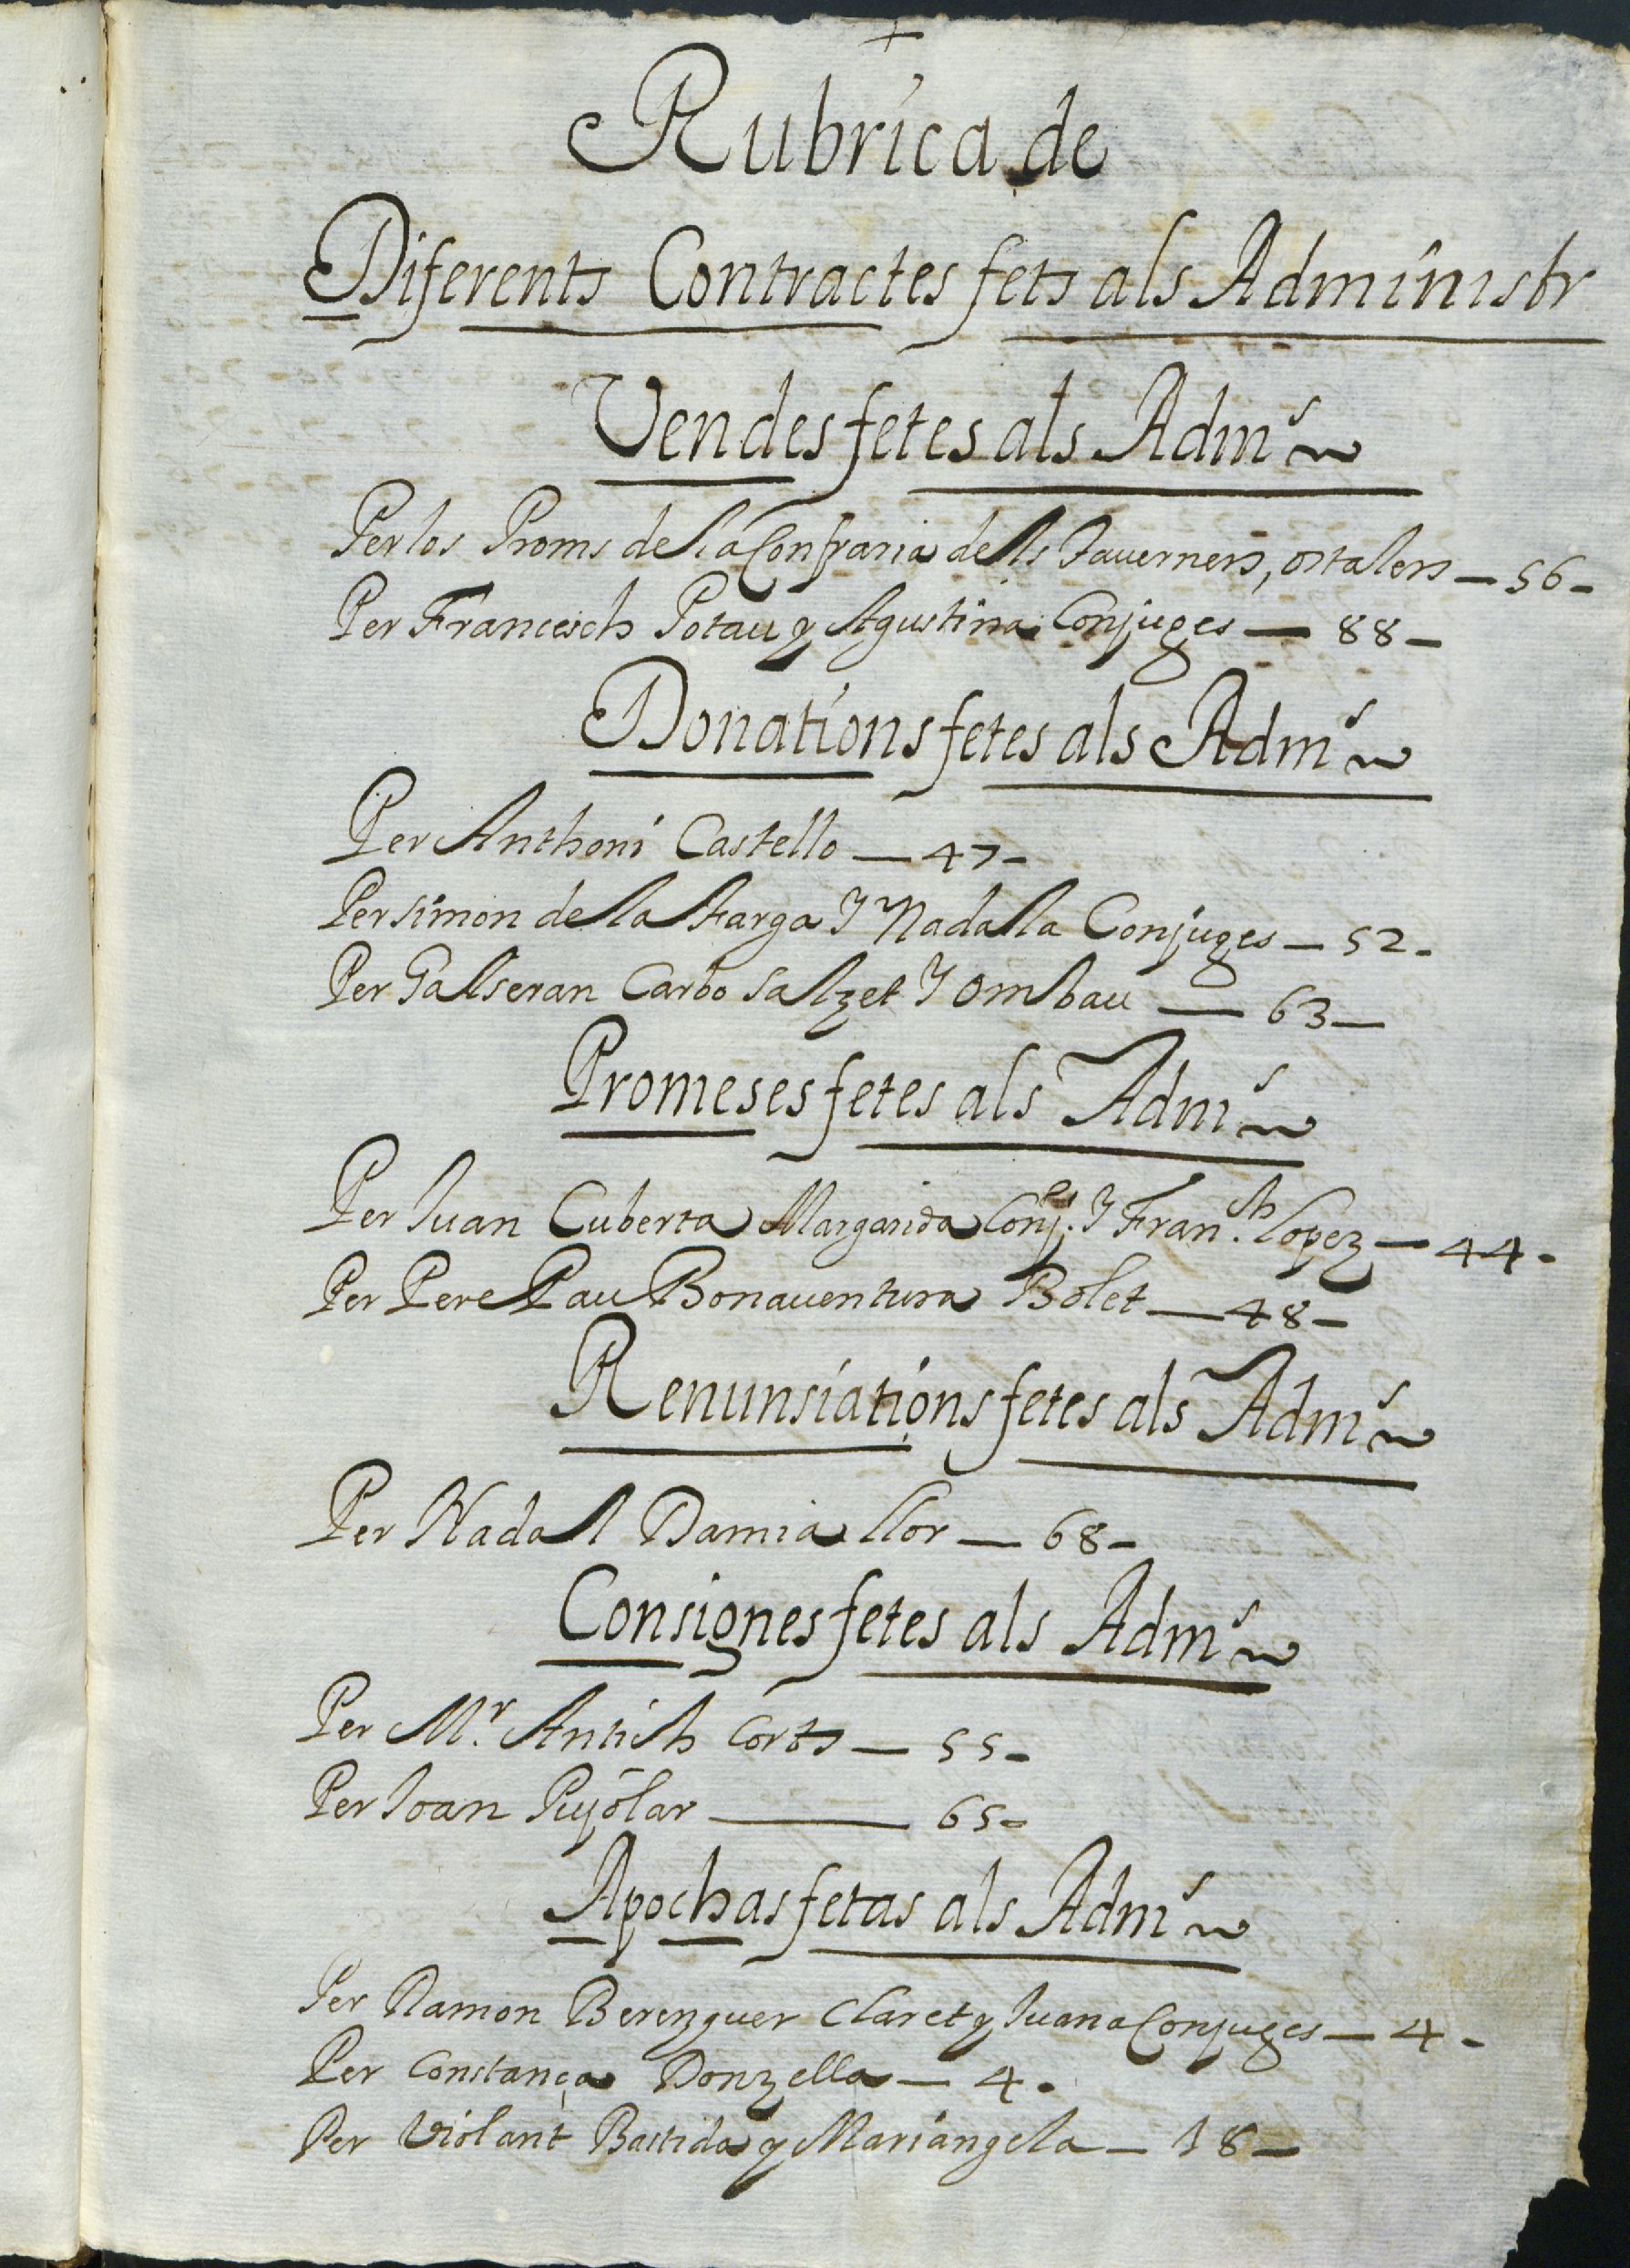 +
Rubrica de
Diferents Contractes fets als Administr
Vendes fetes als Adm.rs
Per los Proms de la Confraria dells Tauerners, ostalers — 56 -
Per Francesch Potau y Agustina Conjuges — 88 -
Donations fetes als Adm.rs
Per Anthoni Castello — 47 -
Per simon de la Farga Y Nadala Conjuges — 52 -
Per Galseran Carbo salzet Y ombau — 63 —
Promeses fetes als Adm.rs
Per Juan Cuberta Margarida Conj.es Y Fran.ch Lopez — 44 -
Per Pere Pau Bonauentura Bolet — 48 -
Renunsiations fetes als Adm.rs
Per Nadal Damia llor — 68 -
Consignes fetes als Adm.rs
Per M.r Antich Corts — 55 -
Per Joan Pujolar — 65 -
Apochas fetas als Adm.rs
Per Ramon Berenguer Claret y Juana Conjuges — 4 -
Per Constança Donzella — 4 -
Per Violant Bastida y Mariangela — 18 —